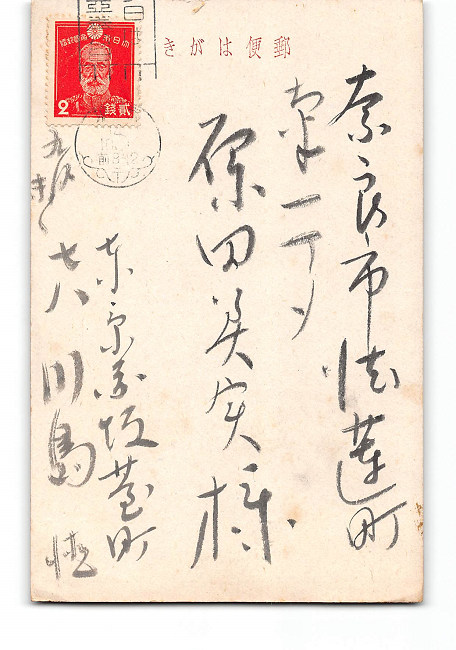 郵便はがき
大日本帝國郵便
2
貳錢
奈良市法蓮町
南一丁メ
原田英実様
東京赤坂台町
七八
川島